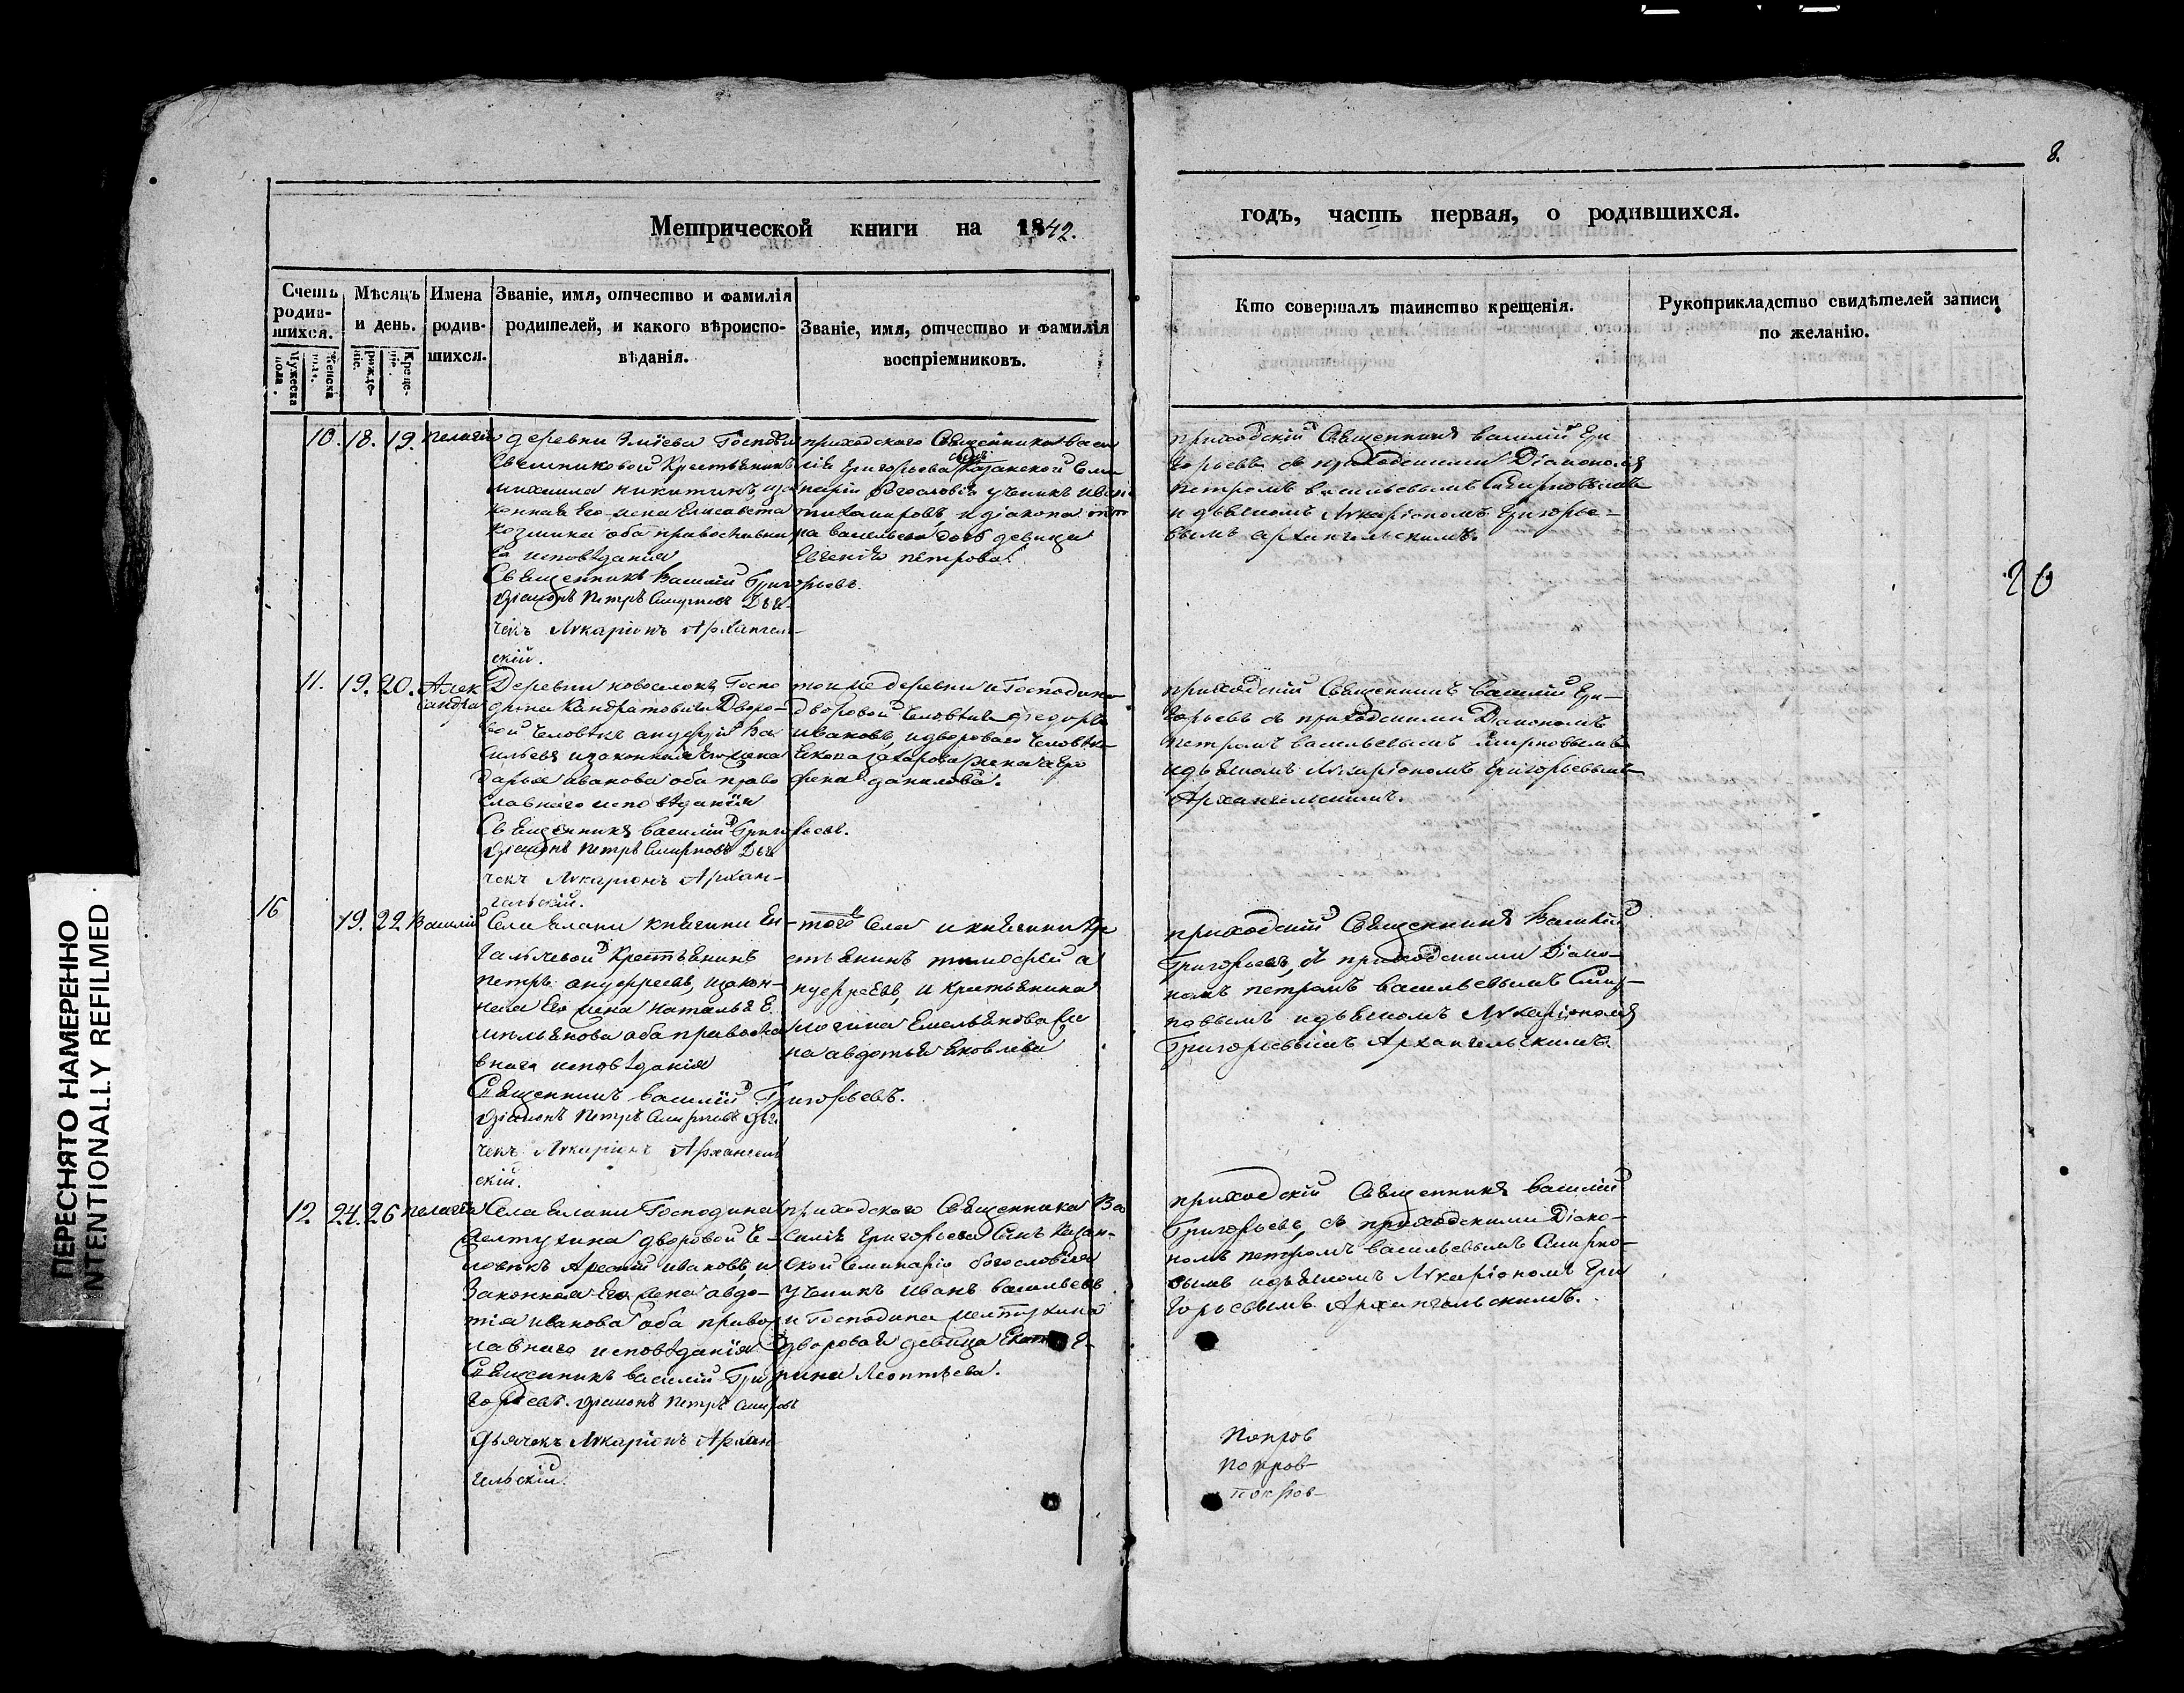 8.
Метрической книги на 1842.
годъ, часть первая, о родившихся.
Счетъ родив-
шихся.
Мужеска пола.
Женска пола.
Мѣсяцъ
и день.
рожде-
нія.
Креще-
нія.
Имена
родив-
шихся.
Званіе, имя, отчество и фамилія
родителей, и какого вѣроиспо-
вѣданія.
Званіе, имя, отчество и фамилія
воспріемниковъ.
Кто совершалъ таинство крещенія.
Рукоприкладство свидѣтелей записи
по желанію.
10. 18. 19. Пелагія
деревни Госпожи
Крестьянинъ
михаила никитинъ, иза
конная Его жена Елисавета
козмина оба православна
го исповѣданія
Священникъ Василій Григорьевъ.
Діаконъ Петръ Смирновъ Дья-
чекъ Лукаріонъ Архангель-
скій.
приходскаго Священника Васи
лія Григорьева сынъ Казанской Семи
наріи богословія ученикъ Иванъ
и діакона пет
ра васильева дочь девица
Евгенія петрова
приходскій Священникъ василій Гри
горьевъ съ приходскими Діакономъ
петромъ васильевымъ Смирновымъ
и дьячкомъ Лукаріономъ Григорье-
вымъ архангельскимъ.
20
11. 19. 20. Алек
сандра
Деревни новоселокъ Госпо
дина Кандратовича Дворо-
вой человѣкъ андрей Ва
сильевъ изаконная Его жена
дарья иванова оба право
славнаго исповѣданія
Священникъ василій Григорьевъ.
Діаконъ Петръ Смирновъ Дья
чекъ Лукаріонъ Архан-
гельскій.
тойже деревни и Господина
дворовой человѣкъ федоръ
ивановъ, идвороваго человѣка
Захарова жена Агра
фена данилова.
приходскій Священникъ василій Гри-
горьевъ съ приходскими Діакономъ
петромъ васильевымъ Смирновымъ
идьячкомъ Лукаріономъ Григорьевымъ
Архангельскимъ.
16 19. 22. Василій
Села Елани княгини Ен
галычевой Крестьянинъ
петръ андреевъ, изакон-
ная Его жена наталья Е
мильянова оба правосла
внаго исповѣданія
Священникъ василій Григорьевъ.
Діаконъ Петръ Смирновъ Дья
чекъ Лукаріонъ Архангель
скій.
того Села и княгини Кре
стьянинъ тимофей а
ндреевъ, и крестьянина
Емельянова же
на авдотья яковлева
приходскій Священникъ Василій
Григорьевъ, съ приходскими Діако-
номъ петромъ васильевымъ Смир-
новымъ идьячкомъ Лукаріономъ
Григорьевымъ Архангельскимъ.
12. 24. 26 пелагея
Села Елани Господина
Желтухина дворовой Че-
ловѣкъ Арсений ивановъ, и
Законная Его жена авдо-
тія иванова оба правос
лавнаго исповѣданія
Священникъ василій Гри
горьевъ. Діаконъ Петръ Смирновъ
Дьячекъ Лукаріонъ Архан
гельскій.
приходскаго Священника Ва
силія Григорьева Сынъ Казан-
ской Семинаріи богословія
ученикъ Иванъ васильевъ
и Господина желтухина
дворовая девица Екате
рина Леонтьева.
приходскій Священникъ василій
Григорьевъ, съ приходскими Діако-
номъ петромъ васильевымъ Смирно-
вымъ идьячкомъ Лукаріономъ Гри
горьевымъ Архангельскимъ.
Покров
Покров
Покров
ПЕРЕСНЯТО НАМЕРЕННО
INTENTIONALLY REFILMED